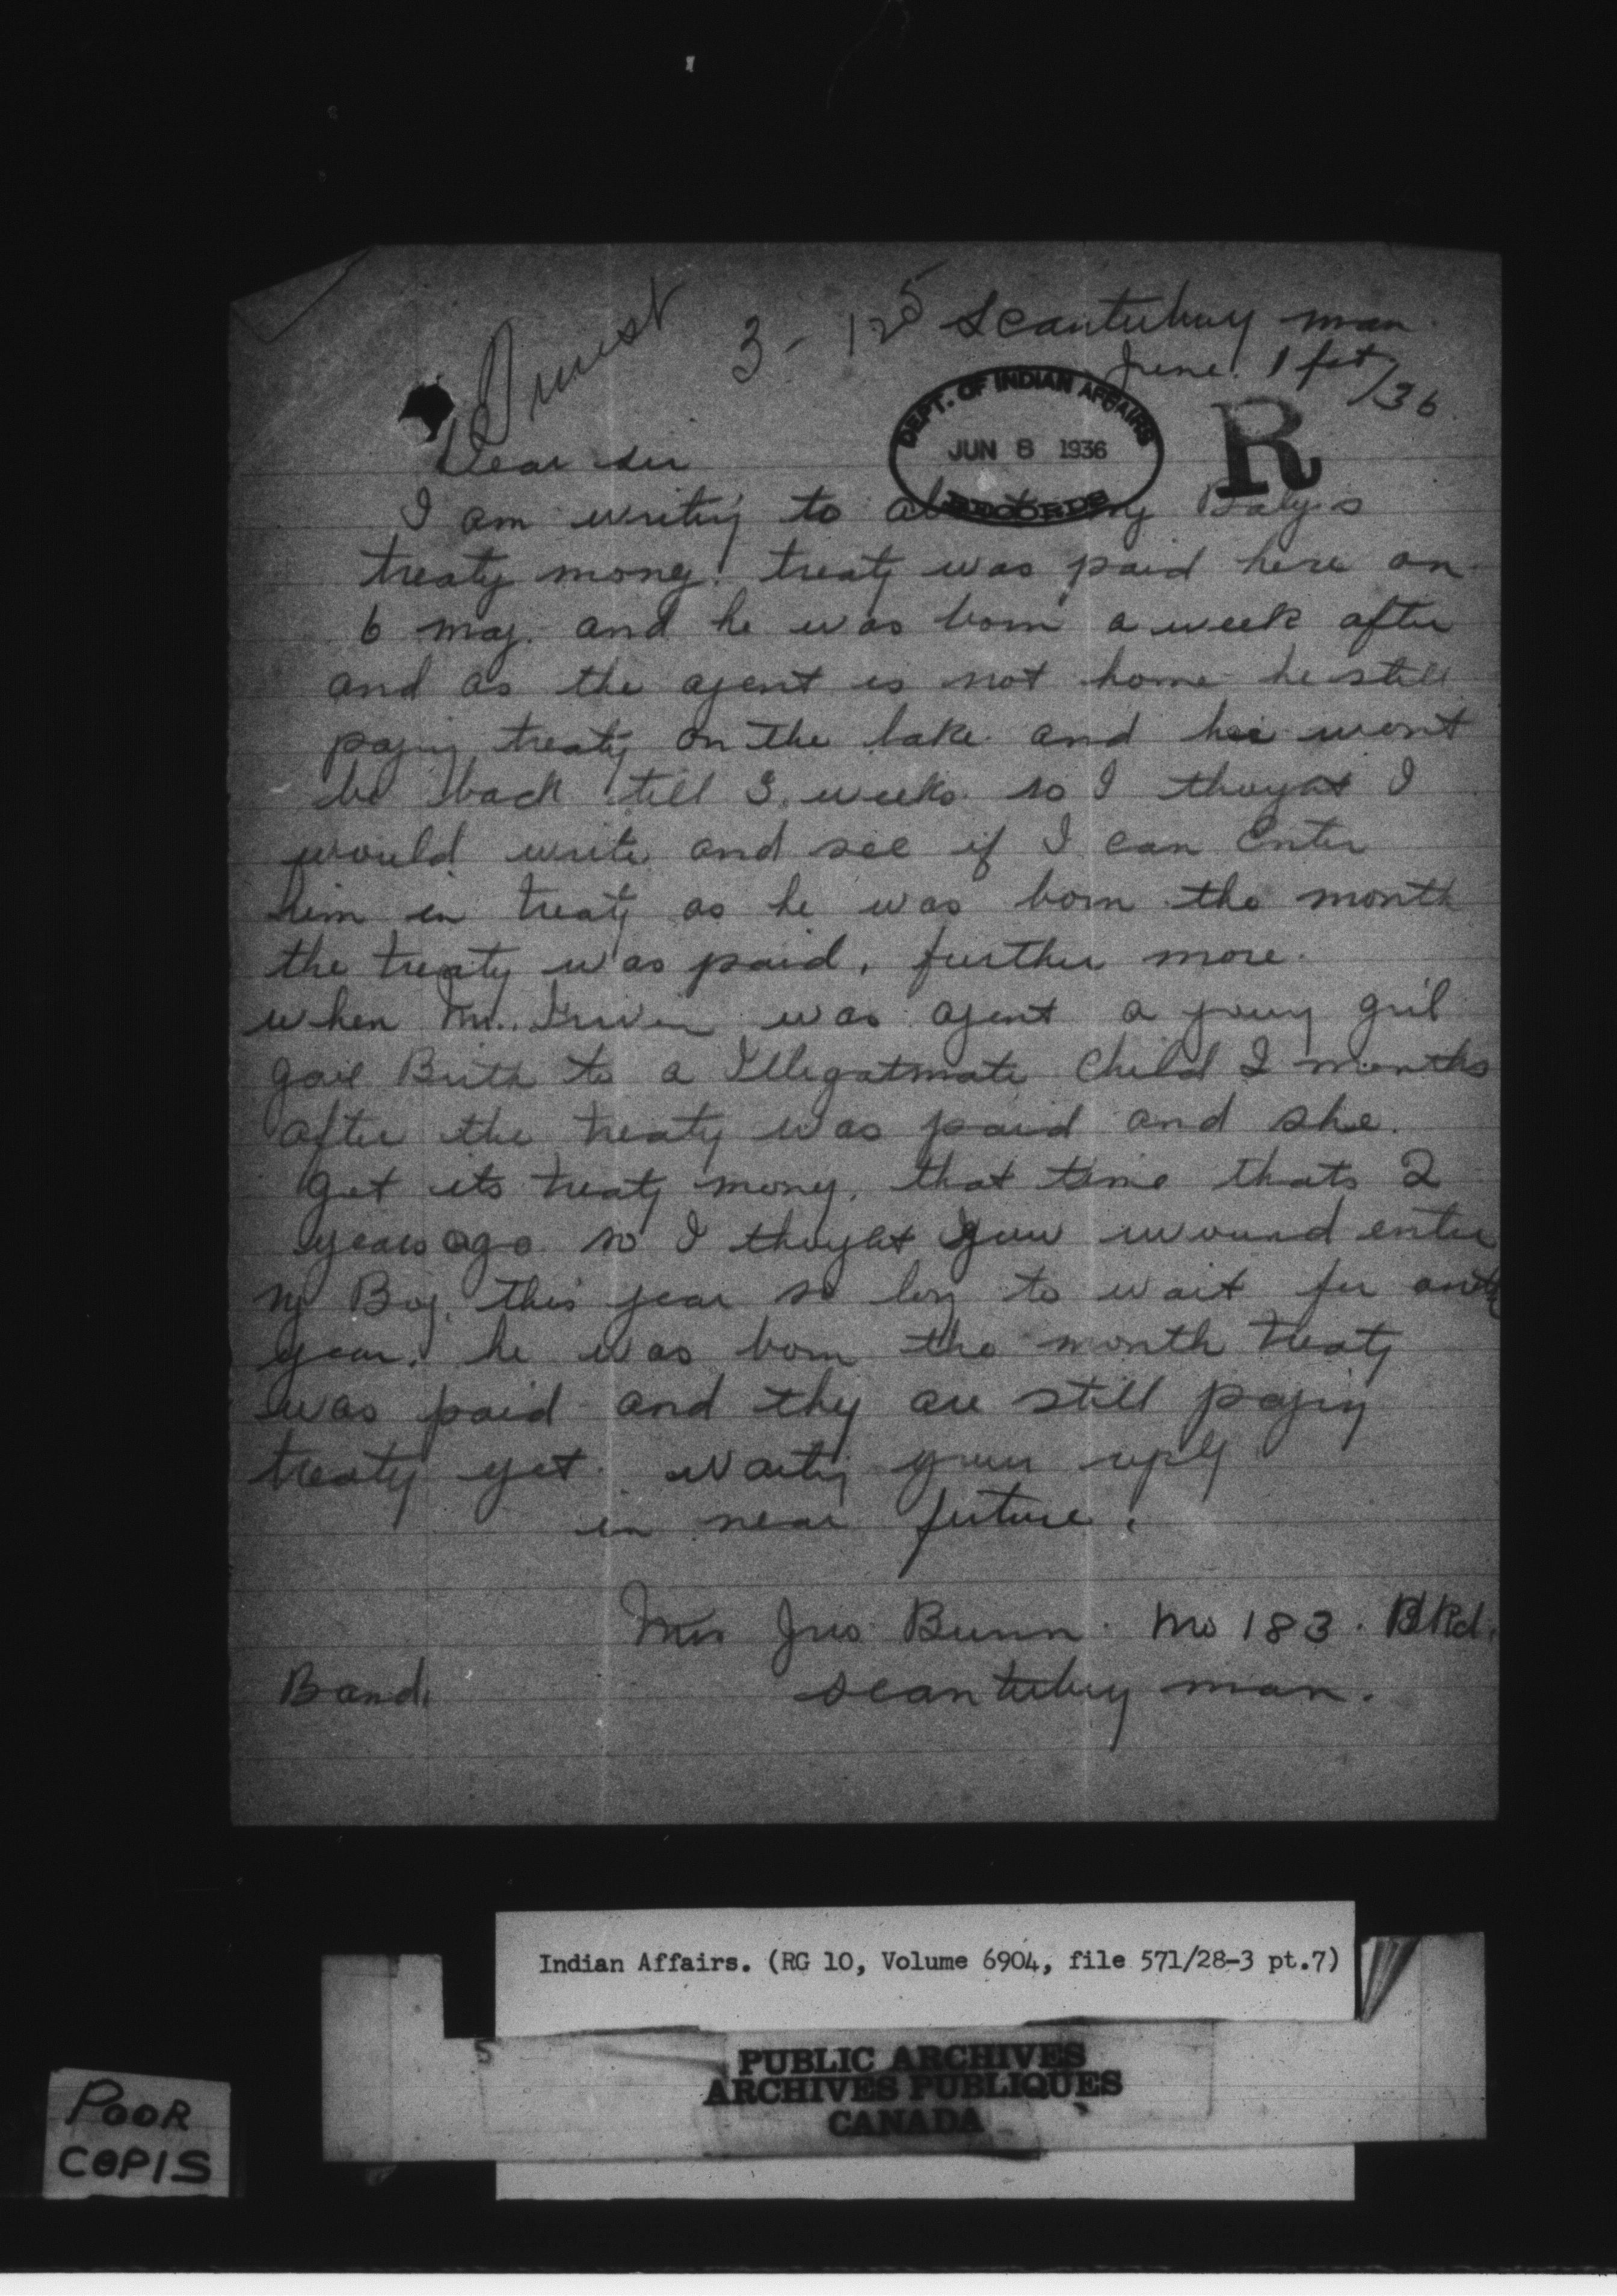 3-125 Scanterbury man
June. 1 fst /36.
DEPT. OF INDIAN AFFAIRS
JUN 8 1936
RECORDS
R
Dear sir
I am writing to about my Baby's
treaty money. treaty was paid here on
6 may. and he was born a week after
and as the agent is not home he still
paying treaty on the lake and he wont
be back till 3 weeks so I thought I
would write and see if I can Enter
him in treaty as he was born the month
the treaty was paid, further more.
when Mr. was agent a young gril
gave Birth to a Illegatmate child 2 months
after the treaty was paid and she.
get its treaty money. that time thats 2
years ago so I thought you wound enter
my Boy. this year so long to wait for anth
year. he was born the month treaty
was paid and they are still paying
treaty yet. waiting your reply
in near future.
Mrs Jno Bunn. No 183. BKd.
Band. Scanterbury man.
Indian Affairs. (RG 10, Volume 6904, file 571/28-3 pt.7)
5
PUBLIC ARCHIVES
ARCHIVES PUBLIQUES
CANADA
POOR
COPIS